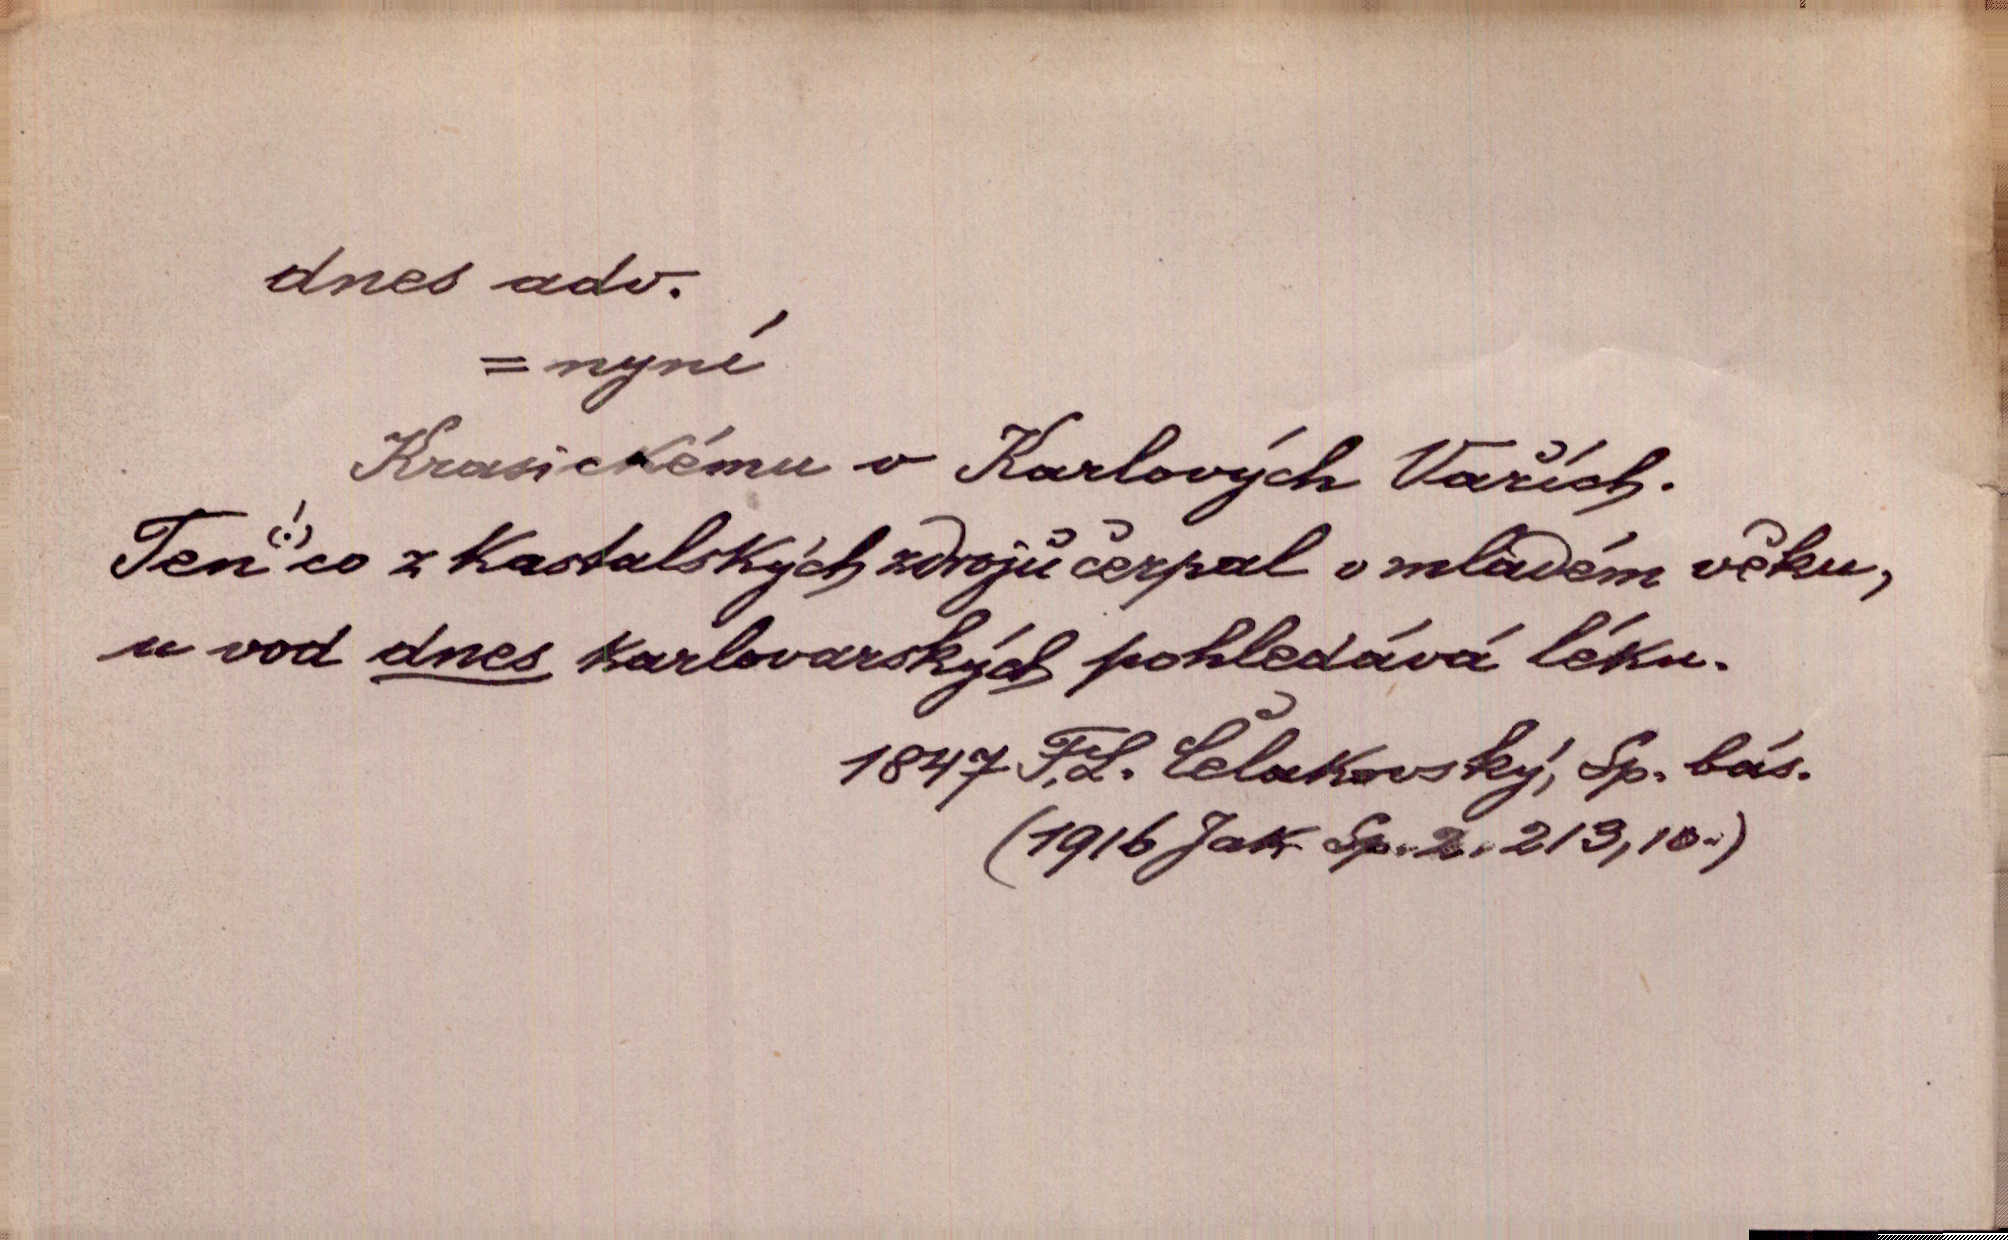 dnes adv.
= nyné
Krasickému v Karlových Vařích.
Ten (!) co z Kastalských zdrojů čerpal v mladém věku,
u vod dnes karlovarských pohledává léku.
1847 F. L. Čelakovský, Sp. bás.
(1916 Jak Sp. 2. 213, 10.)